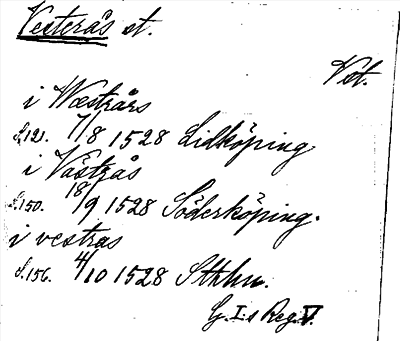 Vesterås st.
Vst.
i Wæstrårs
S. 121. 7/8 1528 Lidköping
i Västrås
S. 150. 18/9 1528 Söderköping.
i vestras
S. 156. 4/10 1528 Sthlm.
G. I:s Reg. V.